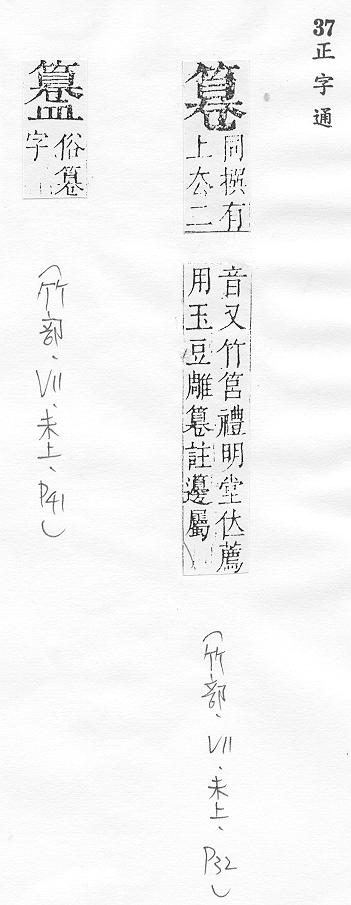 37正字通
篹
同撰有
上去二
音又竹筥禮明堂伏薦
用玉豆雕篹註邊屬
(竹部、VII、未上、P32)
俗篹
字
(竹部、VII、未上、P41)